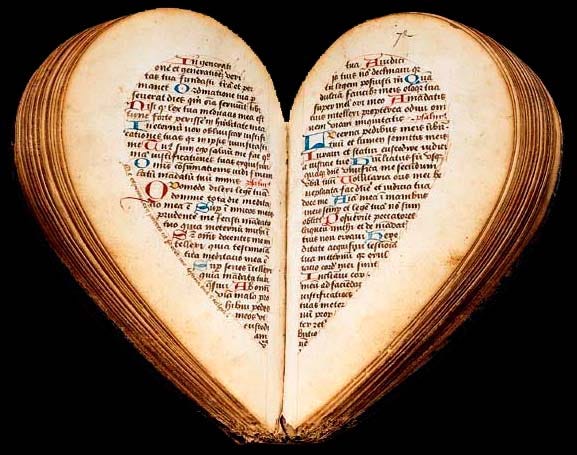 In generati
one et generatione veri
tas tua fundasti terrā et per
manet Ordinatione tua p
severat dies qm oīa serviunt tibi
Nisi q lex tua meditatio mea est
tunc forte periissem in humilitate mea
In eternū nō obliviscar iustifi
cationes tuas qr in ipsis vivificasti
me Tuus sum ego salvū me fac qm
iustificationes tuas exquisivi
Omnis cōsumationis vidi finem
latū mādatū tuū nimis
Quomodo dilexi legē tuā
domine tota die medita
tio mea ē Sup inimicos meos
prudentē me fecisti mādato
tuo quia in eternū michi ē
Sup oms docentes me in
tellexi quia testimōia
tua meditatio mea ē
Sup senes itellexi
quia mādata tua
qsivi Ab omi
via mala pro
hibui pedes
meos ut
custodi
am
tua A iudici
js tuis nō declinavi qr
tu legem posuisti m Quā
dulcia faucibs meis eloqa tua
super mel ori meo A mādatis
tuis intellexi propterea odivi om
nem viam iniquitatis psalmus
Lucerna pedibus meis verbū
tuū et lumen semitis meis
Iuravi et statui custodire iudici
a iustitie tue Humiliatus sū usq
quaq dnē vivifica me secūdum
verbū tuū Voluntaria oris mei be
neplacita fac dnē et iudicia tua
doce me Aīa mea ī manibus
meis semp et legem tuā nō sum
oblit9 Posuerūt peccatores
laqueum michi et de mādatis
tuis non erravi Here
ditate acquisivi testimōia
tua in eternū qr exul
tatio cordis mei sunt
Inclinavi cor
meū ad faciendas
iustificationes
tuas in eter
nū prop
ter ret
butio
nē